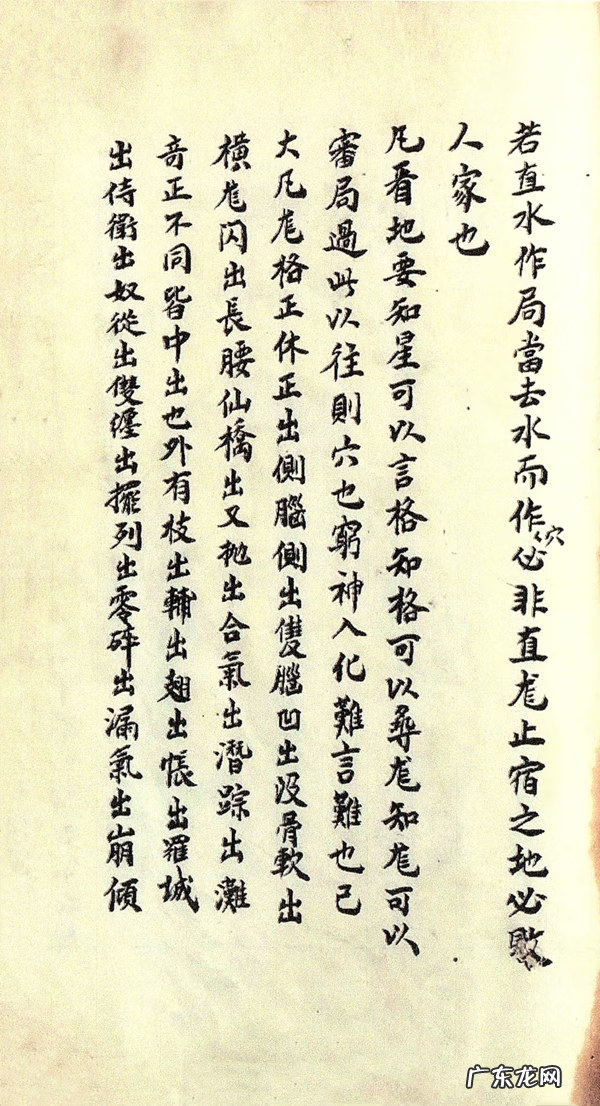 若直水作局當去水而作穴必非直龙止宿之地必敗
人家也
凡看地要知星可以言格知格可以尋龙知龙可以
審局過此以往則穴也窮神入化難言難也已
大凡龙格正休正出側腦側出雙腦凹出没骨軟出
橫龙闪出長腰仙橋出又抛出合氣出潛踪出灘
奇正不同皆中出也外有枝出輔出翅出帳出羅城
出侍衛出奴從出雙纏出擺列出零碎出漏氣出崩傾
广东龙网